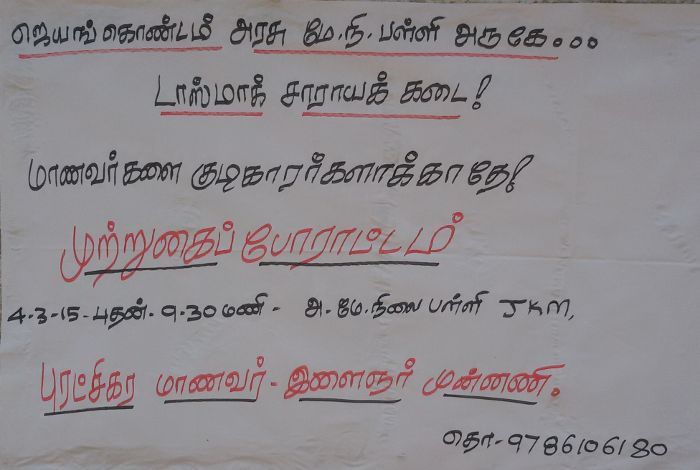 ஜெயங்கொண்டம் அரசு மே.நி.பள்ளி அருகே...
டாஸ்மாக் சாராயக் கடை!
மாணவர்களை குடிகாரர்களாக்காதே!
முற்றுகைப் போராட்டம்
4-3-15-புதன்-9-30 மணி - அ.மே.நிலை பள்ளி JKM,
புரட்சிகர மாணவர்-இளைஞர் முன்னணி.
தொ-9786106180